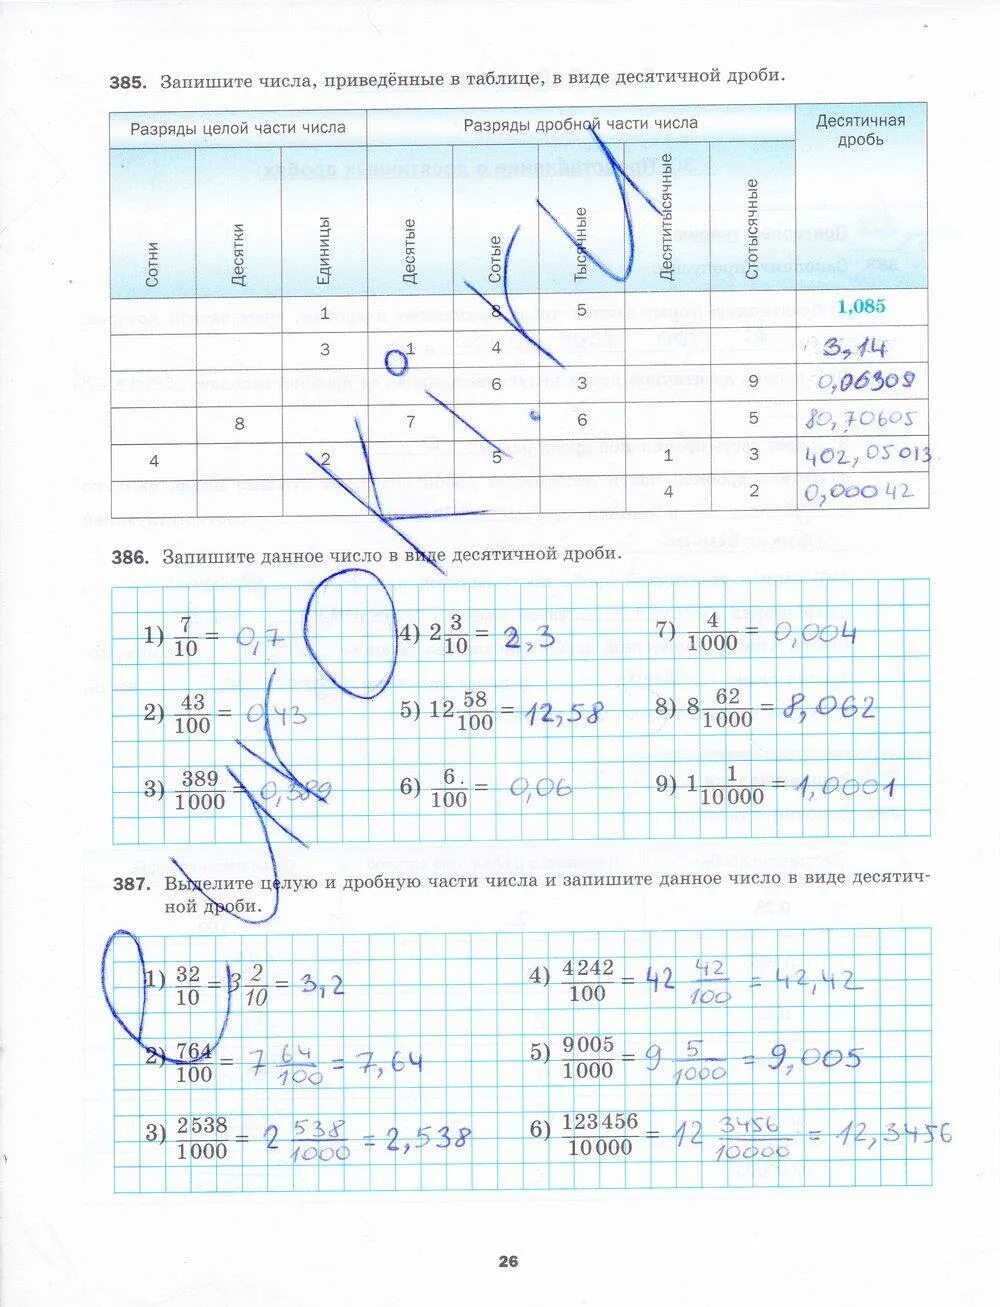 385. Запишите числа, приведённые в таблице, в виде десятичной дроби.
Разряды целой части числа Разряды дробной части числа Десятичная дробь
Сотни Десятки Единицы Десятые Сотые Тысячные Десятитысячные Стотысячные
1 8 5 1,085
3 1 4 3,14
6 3 9 0,06309
8 7 6 5 80,70605
4 2 5 1 3 402,05013
4 2 0,00042
386. Запишите данное число в виде десятичной дроби.
1) 7/10 = 0,7 4) 2 3/10 = 2,3 7) 4/1000 = 0,004
2) 43/100 = 0,43 5) 12 58/100 = 12,58 8) 8 62/1000 = 8,062
3) 389/1000 = 0,389 6) 6/100 = 0,06 9) 1 1/10000 = 1,0001
387. Выделите целую и дробную части числа и запишите данное число в виде десятич-
ной дроби.
1) 32/10 = 3 2/10 = 3,2 4) 4242/100 = 42 42/100 = 42,42
2) 764/100 = 7 64/100 = 7,64 5) 9005/1000 = 9 5/1000 = 9,005
3) 2538/1000 = 2 538/1000 = 2,538 6) 123456/10000 = 12 3456/10000 = 12,3456
26